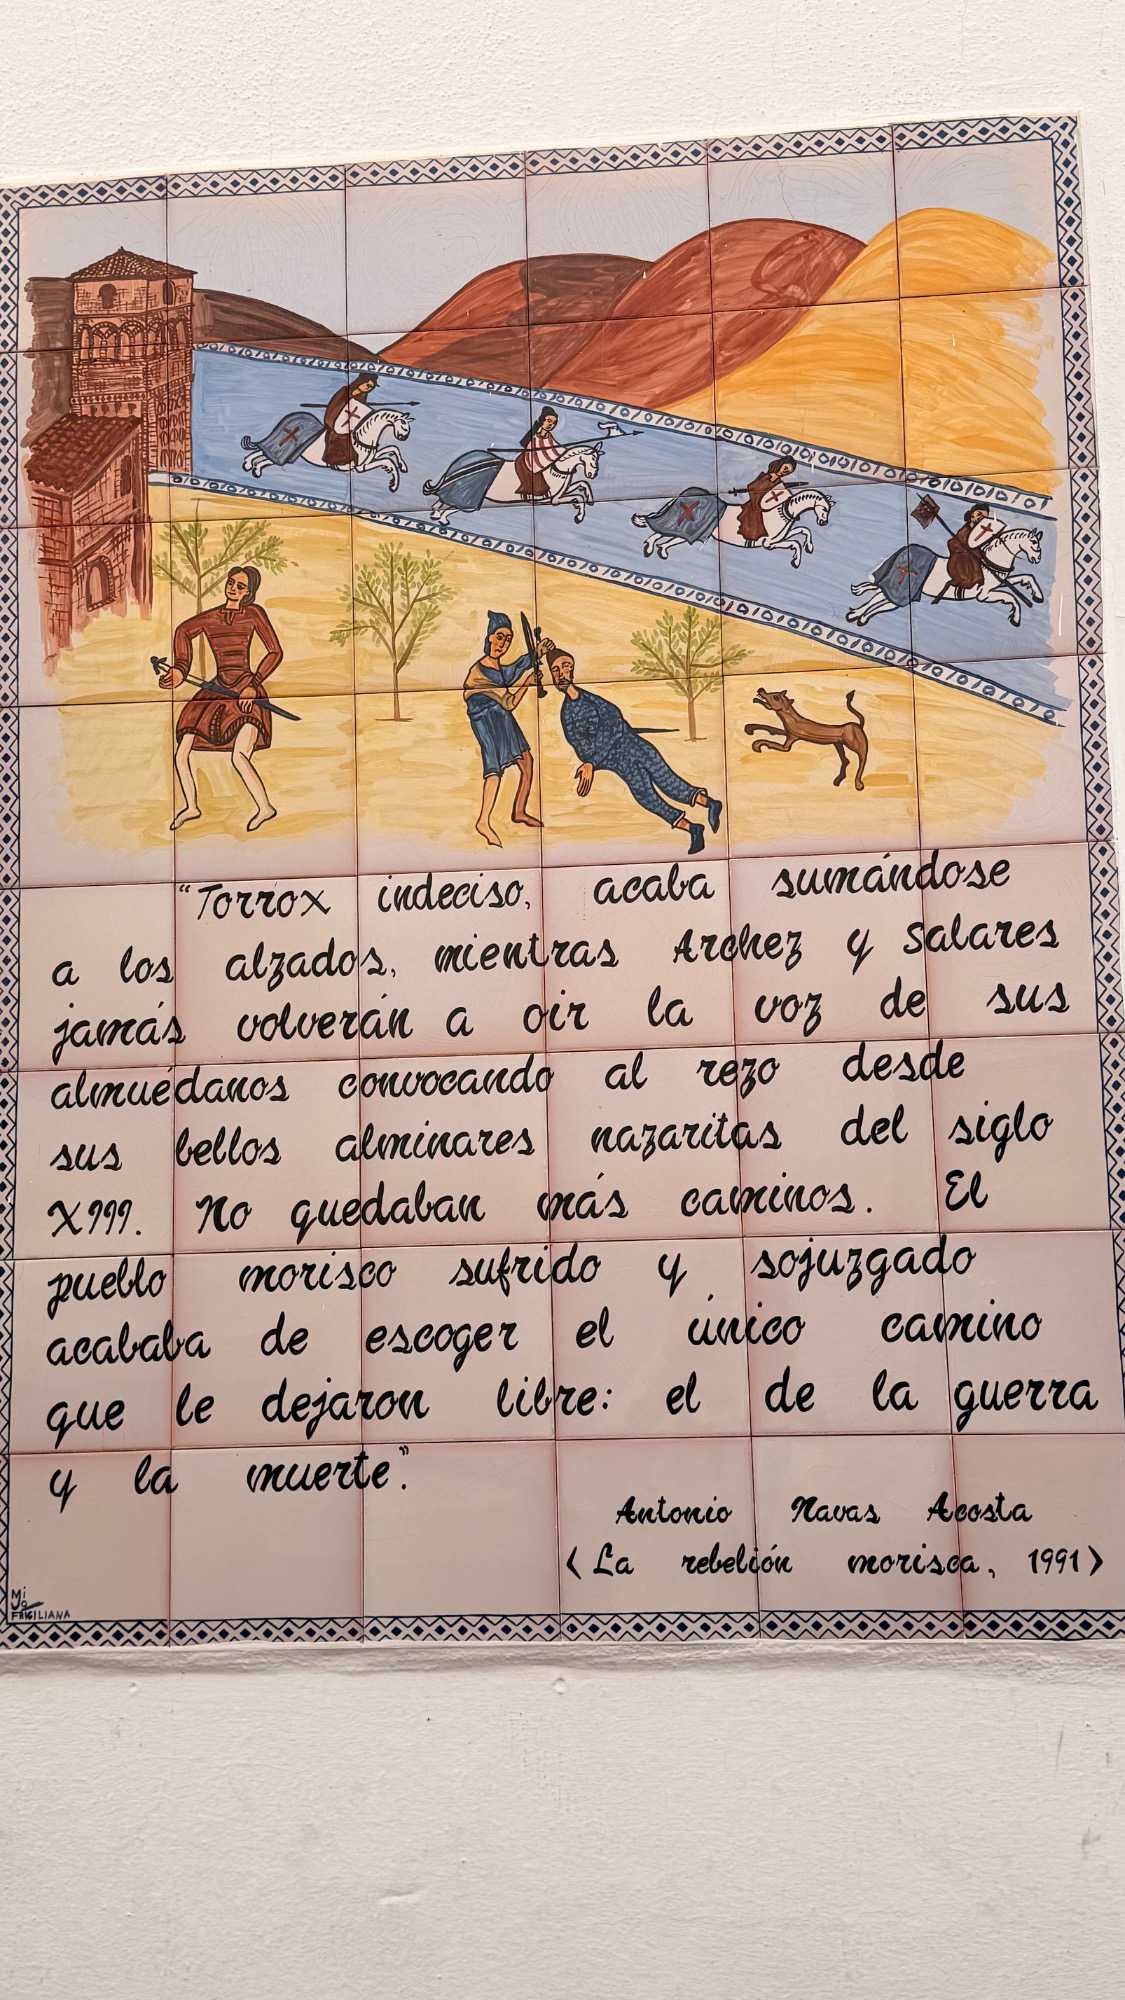 "Torrox indeciso, acaba sumándose
a los alzados, mientras Archez y Salares
jamás volverán a oir la voz de sus
almuédanos convocando al rezo desde
sus bellos alminares nazaritas del siglo
XIII. No quedaban más caminos. El
pueblo morisco sufrido y sojuzgado
acababa de escoger el único camino
que le dejaron libre: el de la guerra
y la muerte".
Antonio Navas Acosta
(La rebelión morisca, 1991)
FRIGILIANA